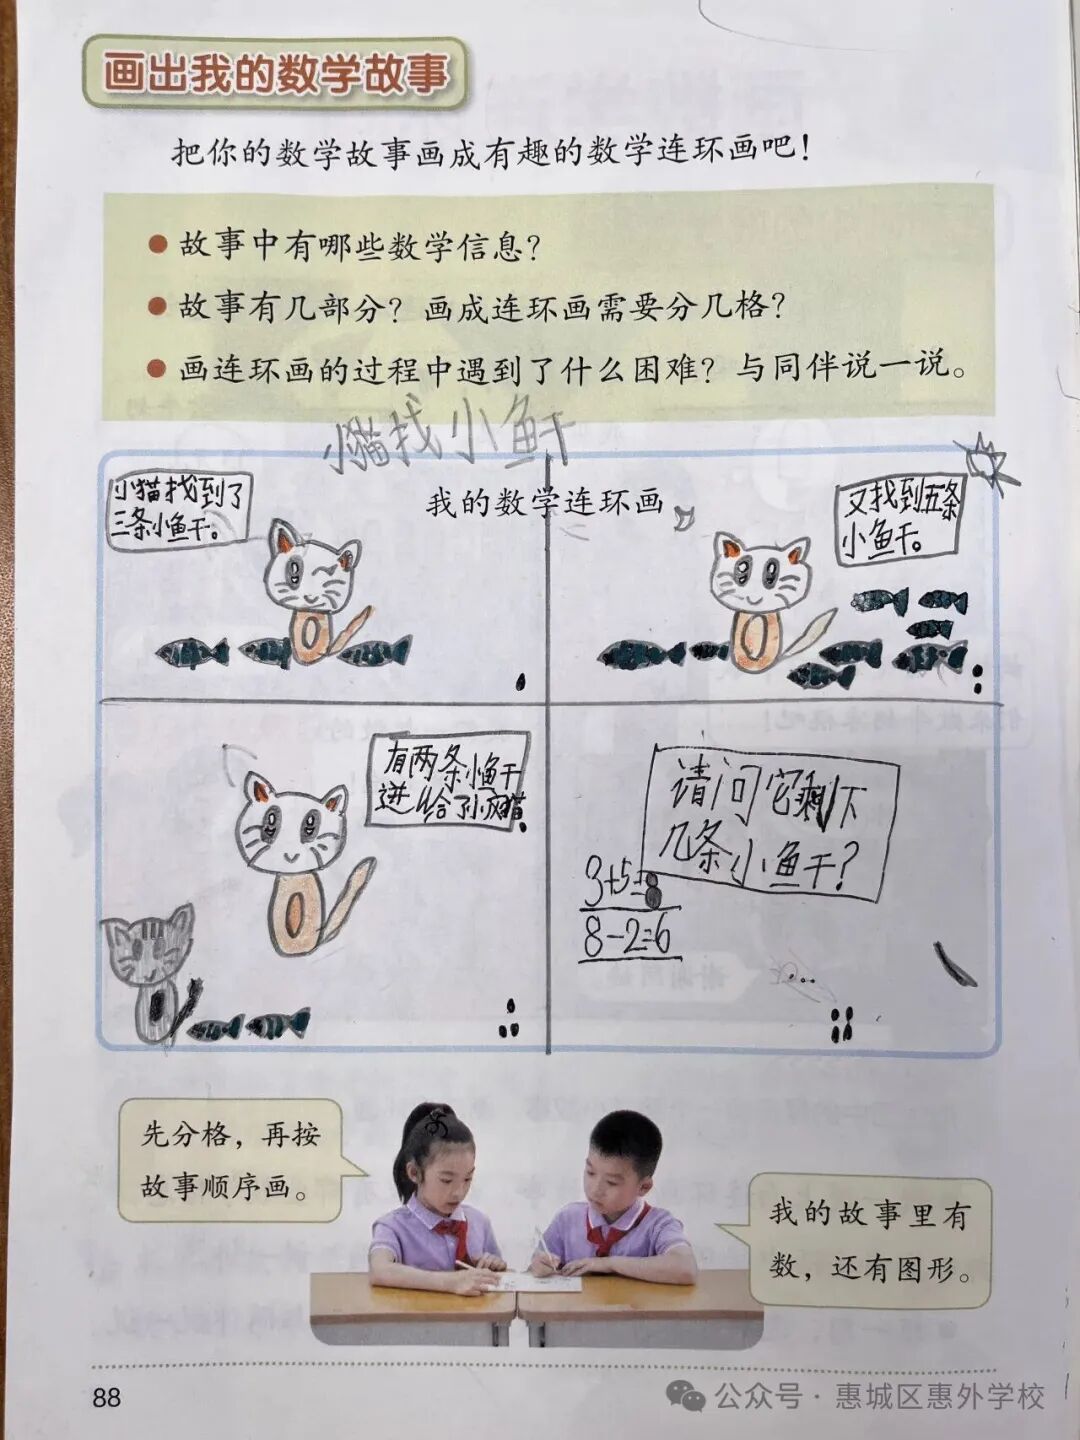 画出我的数学故事
把你的数学故事画成有趣的数学连环画吧！
● 故事中有哪些数学信息？
● 故事有几部分？画成连环画需要分几格？
● 画连环画的过程中遇到了什么困难？与同伴说一说。
小猫找小鱼干
我的数学连环画
小猫找到了
三条小鱼干。
又找到五条
小鱼干。
有两条小鱼干
送给了小灰猫。
请问它剩下
几条小鱼干？
3+5=8
8-2=6
先分格，再按
故事顺序画。
我的故事里有
数，还有图形。
88
公众号·惠城区惠外学校